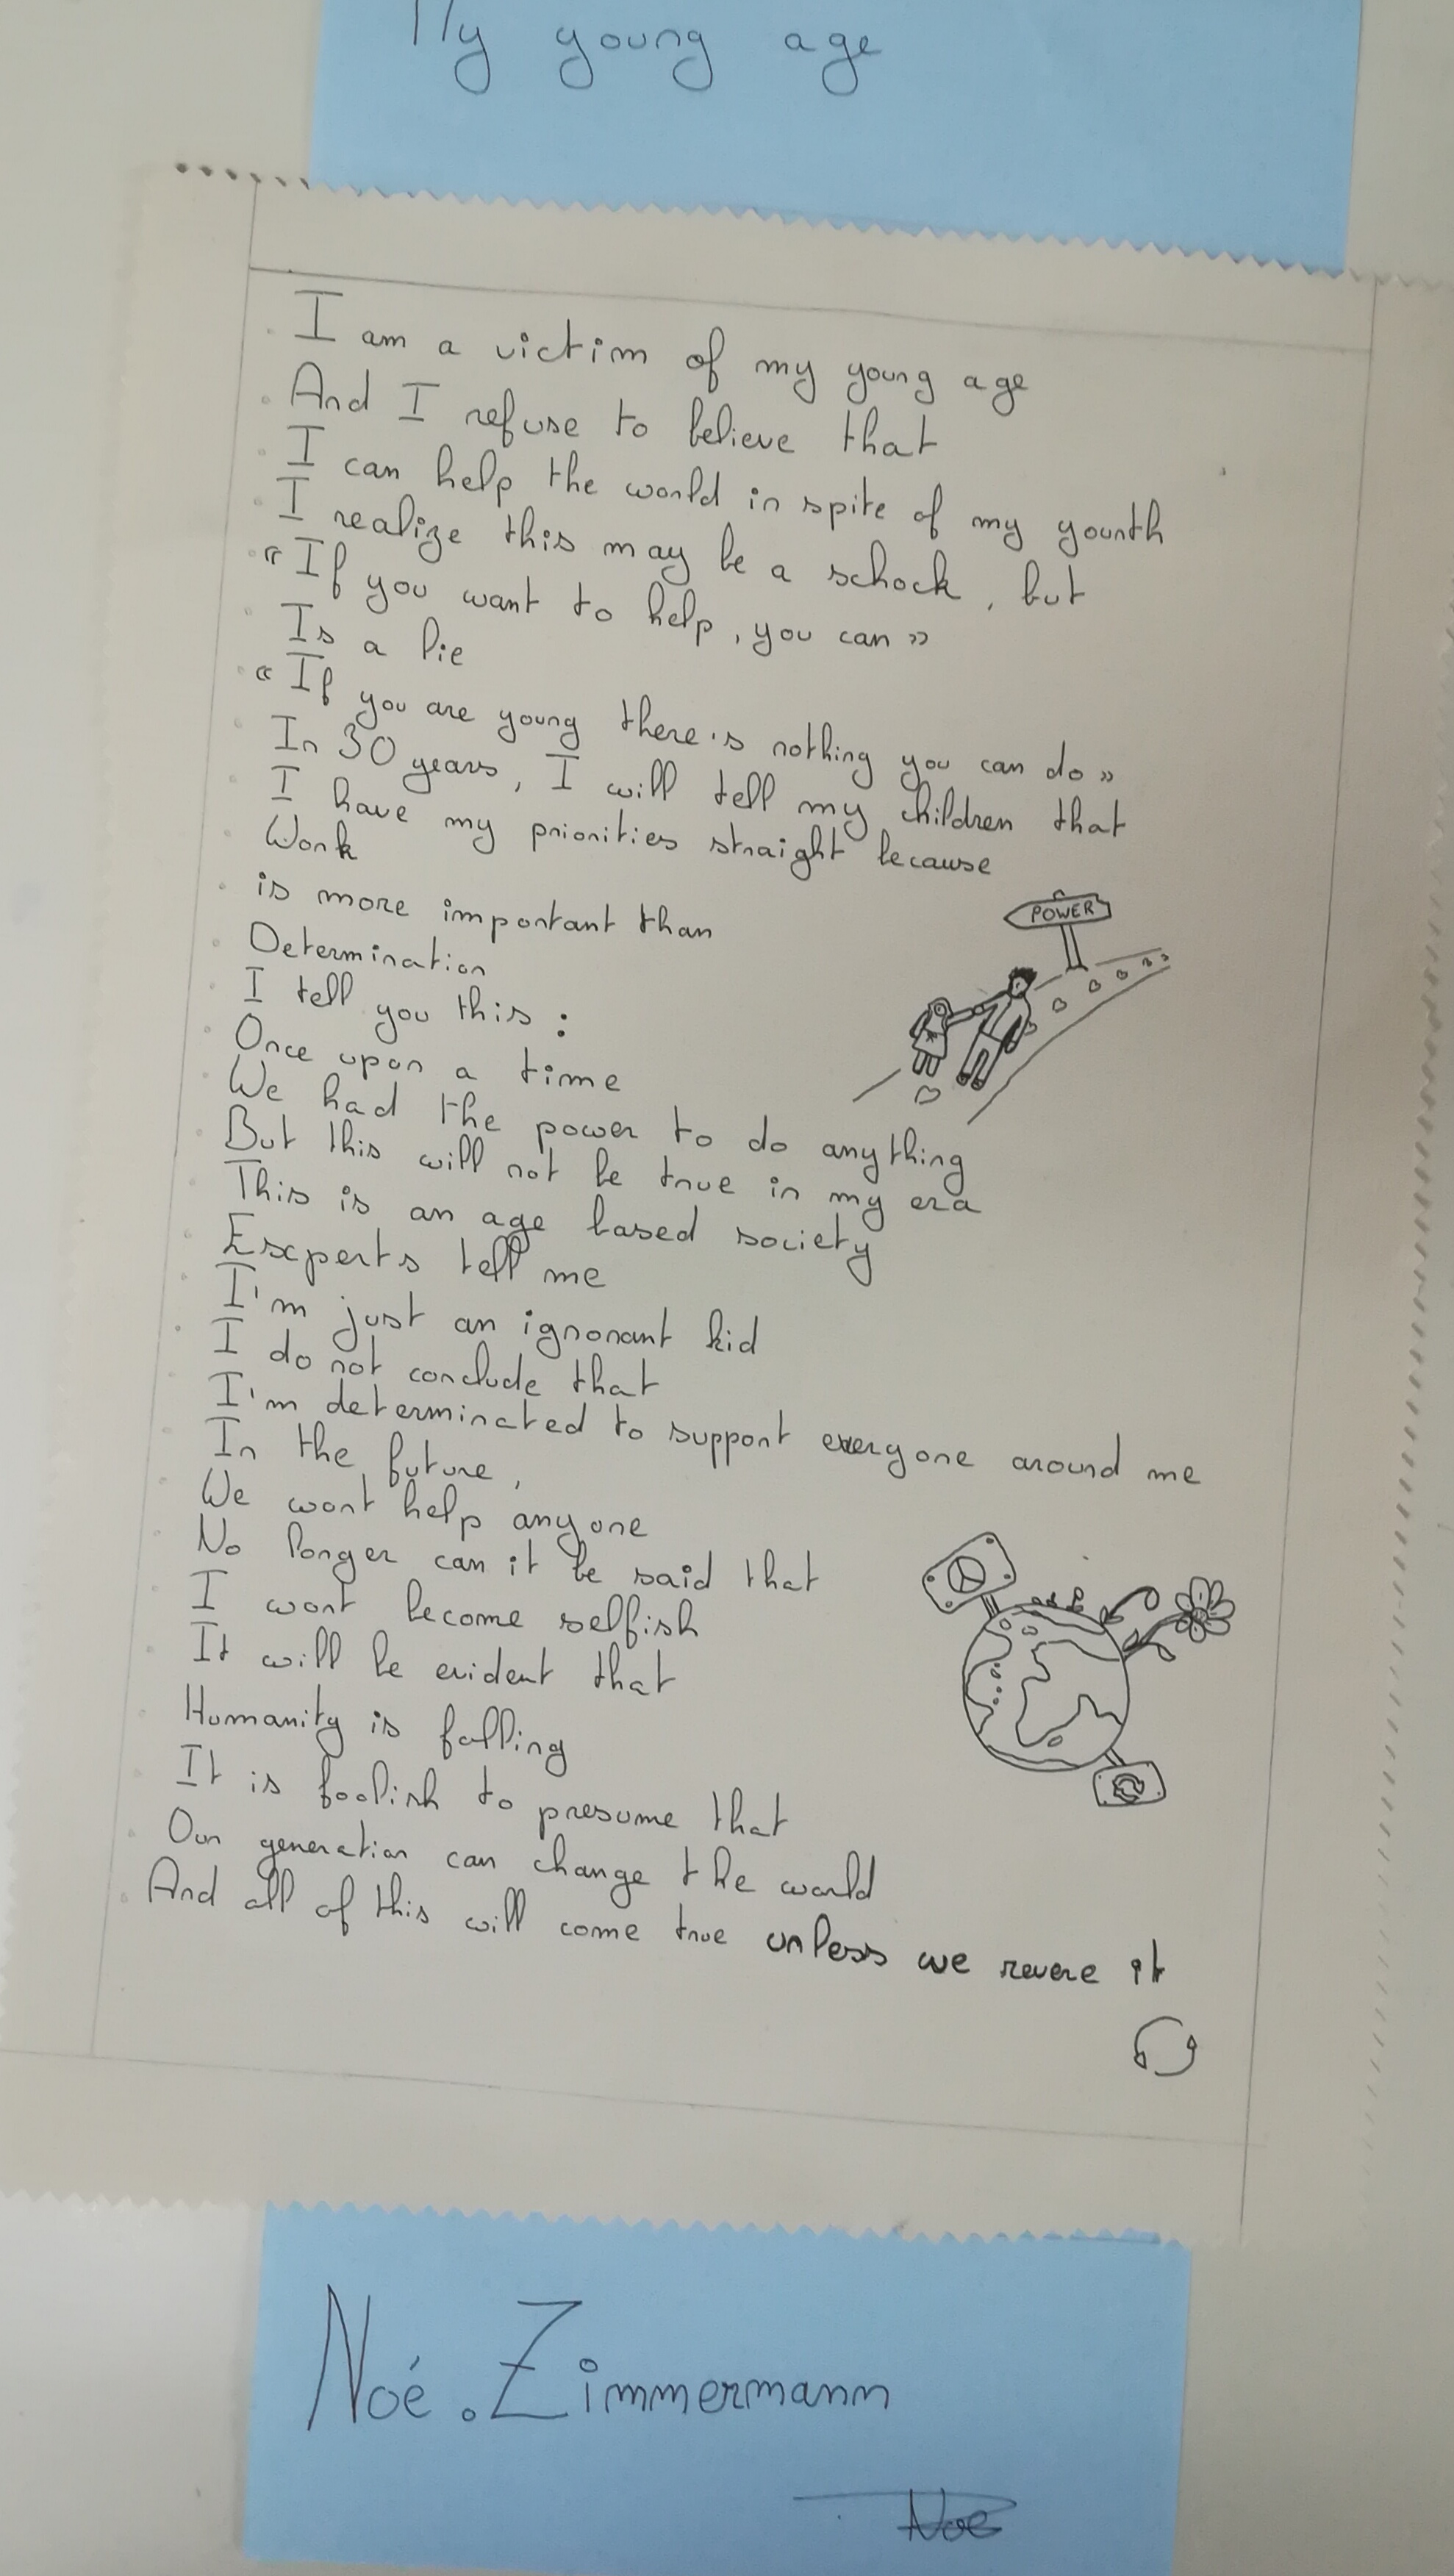 My young age
I am a victim of my young age
And I refuse to believe that
I can help the world in spite of my younth
I realize this may be a schock, but
« If you want to help, you can »
Is a lie
« If you are young there's nothing you can do »
In 30 years, I will tell my children that
I have my priorities straight because
Work
is more important than
Determination
I tell you this :
Once upon a time
We had the power to do anything
But this will not be true in my era
This is an age based society
Experts tell me
I'm just an ignorant kid
I do not conclude that
I'm determinated to support everyone around me
In the future,
We wont help anyone
No longer can it be said that
I wont become selfish
It will be evident that
Humanity is falling
It is foolish to presume that
Our generation can change the world
And all of this will come true unless we revere it
POWER
Noé. Zimmermann
Noé